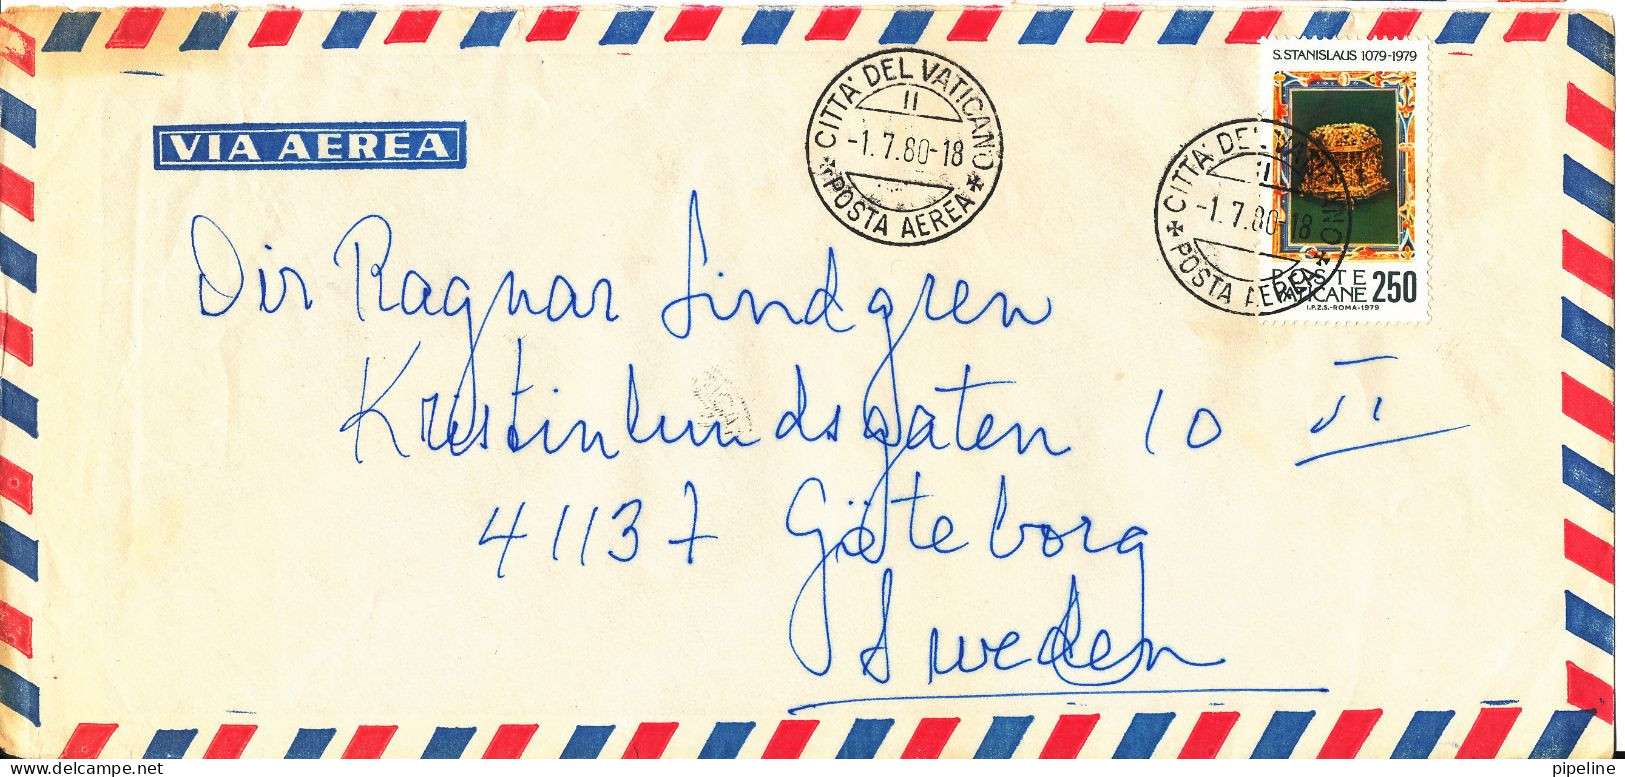 VIA AEREA
CITTA' DEL VATICANO
II
-1.7.80-18
POSTA AEREA
S.STANISLAUS 1079-1979
CITTA' DEL VATICANO
II
-1.7.80-18
POSTA AEREA
POSTE
VATICANE 250
I.P.Z.S.-ROMA-1979
Dir Ragnar Lindgren
Kristinlundsgaten 10 VI
41137 Göteborg
Sweden
pipeline